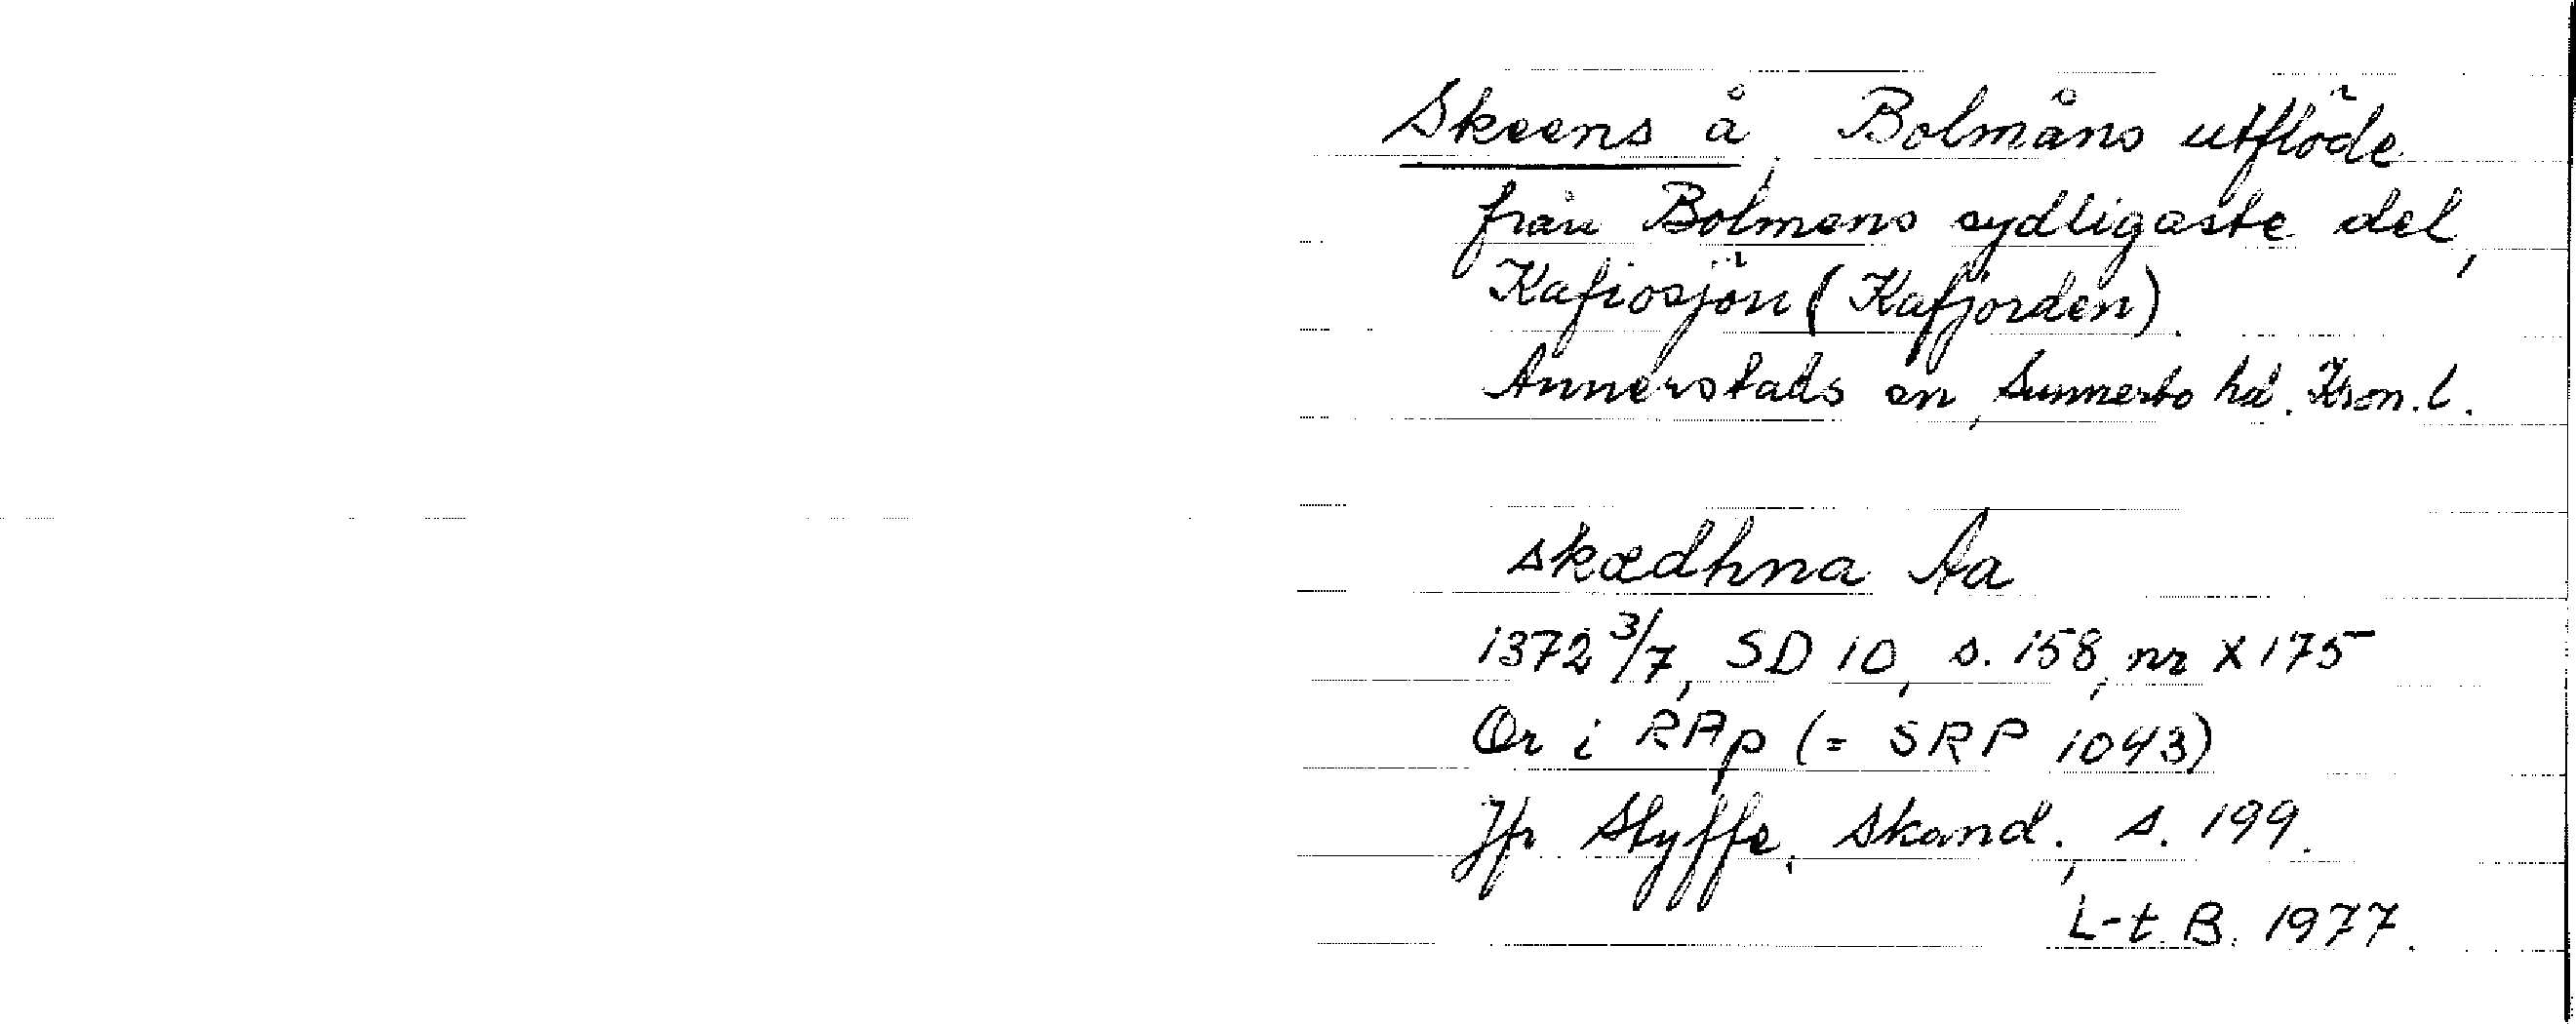 Skeens å, Bolmåns utflöde
från Bolmens sydligaste del,
Kafiosjön (Kafjorden).
Annerstads sn, Sunnerbo hd. Kron. l.
skædhna Aa
1372 3/7, SD 10, s. 158, nr X 175
Or i RAp (= SRP 1043)
Jfr Styffe, Skand., s. 199.
L-t B. 1977.